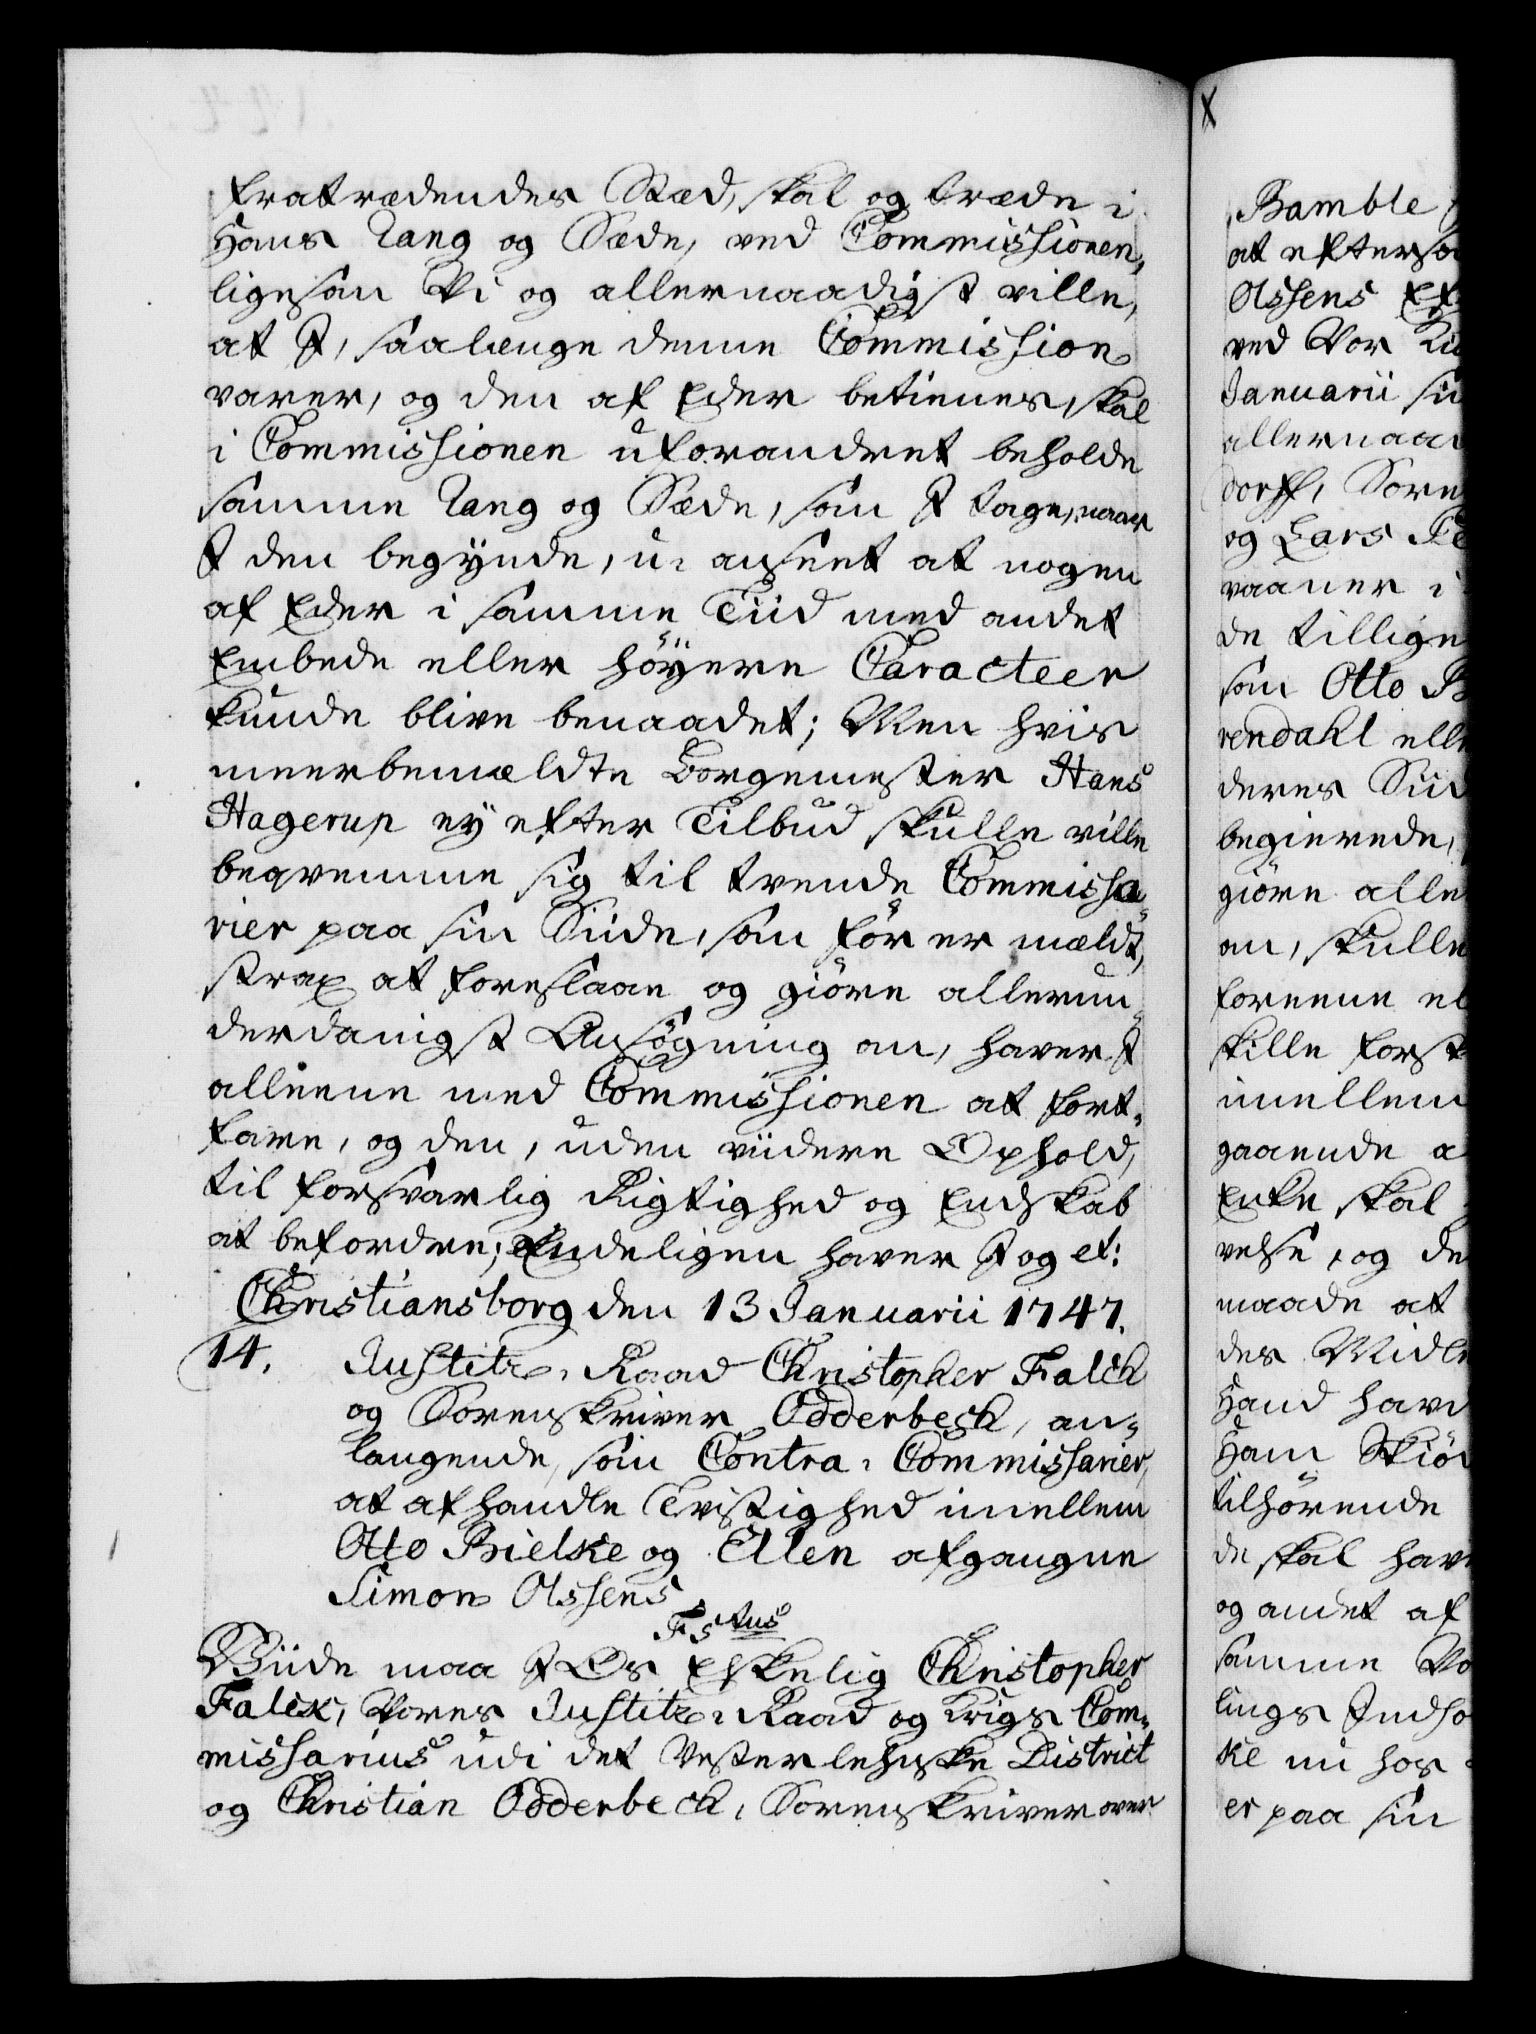 fratrædendes Stæd, skal og træde i
Hans Rang og Sæde, ved Commissionen,
ligesom Vi og allernaadigst ville,
at I, saalænge denne Commission
varer, og den af Eder betienes, skal
i Commissionen uforandret beholde
samme Rang og Sæde, som I tage, naar
I den begynde, u-anseet at nogen
af Eder i samme Tiid med andet
Embede eller höyere Caracteer
kunde blive benaadet; Men hvis
meerbemældte Borgemester Hans
Hagerup ey efter Tilbud skulle ville
beqvemme sig til trende Commissa-
rier paa sin Siide, som för er mældt,
strax at foreslaae og giöre allerun-
derdanigst Ansögning om, haver I
alleene med Commissionen at fort-
fare, og den, uden viidere Ophold,
til forsvarlig Rigtighed og Endskab
at befordre; Endeligen haver I og et:
Christiansborg den 13 Januarii 1747.
14. Justitz-Raad Christopher Falck
og Sorenskriver Odderbech, an-
langende, som Contra-Commissarier,
at afhandle Tvistighed imellem
Otto Bielke og Ellen afgangne
Simon Olssens
F5 tus
Viide maa I Os Elskelig Christopher
Falck, Vores Justitz-Raad og Krigs Com-
missarius udi det Vesterlehnske District
og Christian Odderbech, Sorenskriver over
X
Bamble
at efterso
Olssens Ef
ved Vor
Januarii
allernaa
dorff, Sore
og Lars
vaaner i
de tillige
som Otto B
rendahl elle
deres Siid
begierede,
giöre alle
om, skulle
foreene el
skille forst
imellem
gaaende a
Enke skal
velse, og de
maade at
des Midle
Hand havd
Ham Skiöd
tilhörende
de skal hav
og andet af
samme Vo
lings Indho
ke nu hos
er paa sin